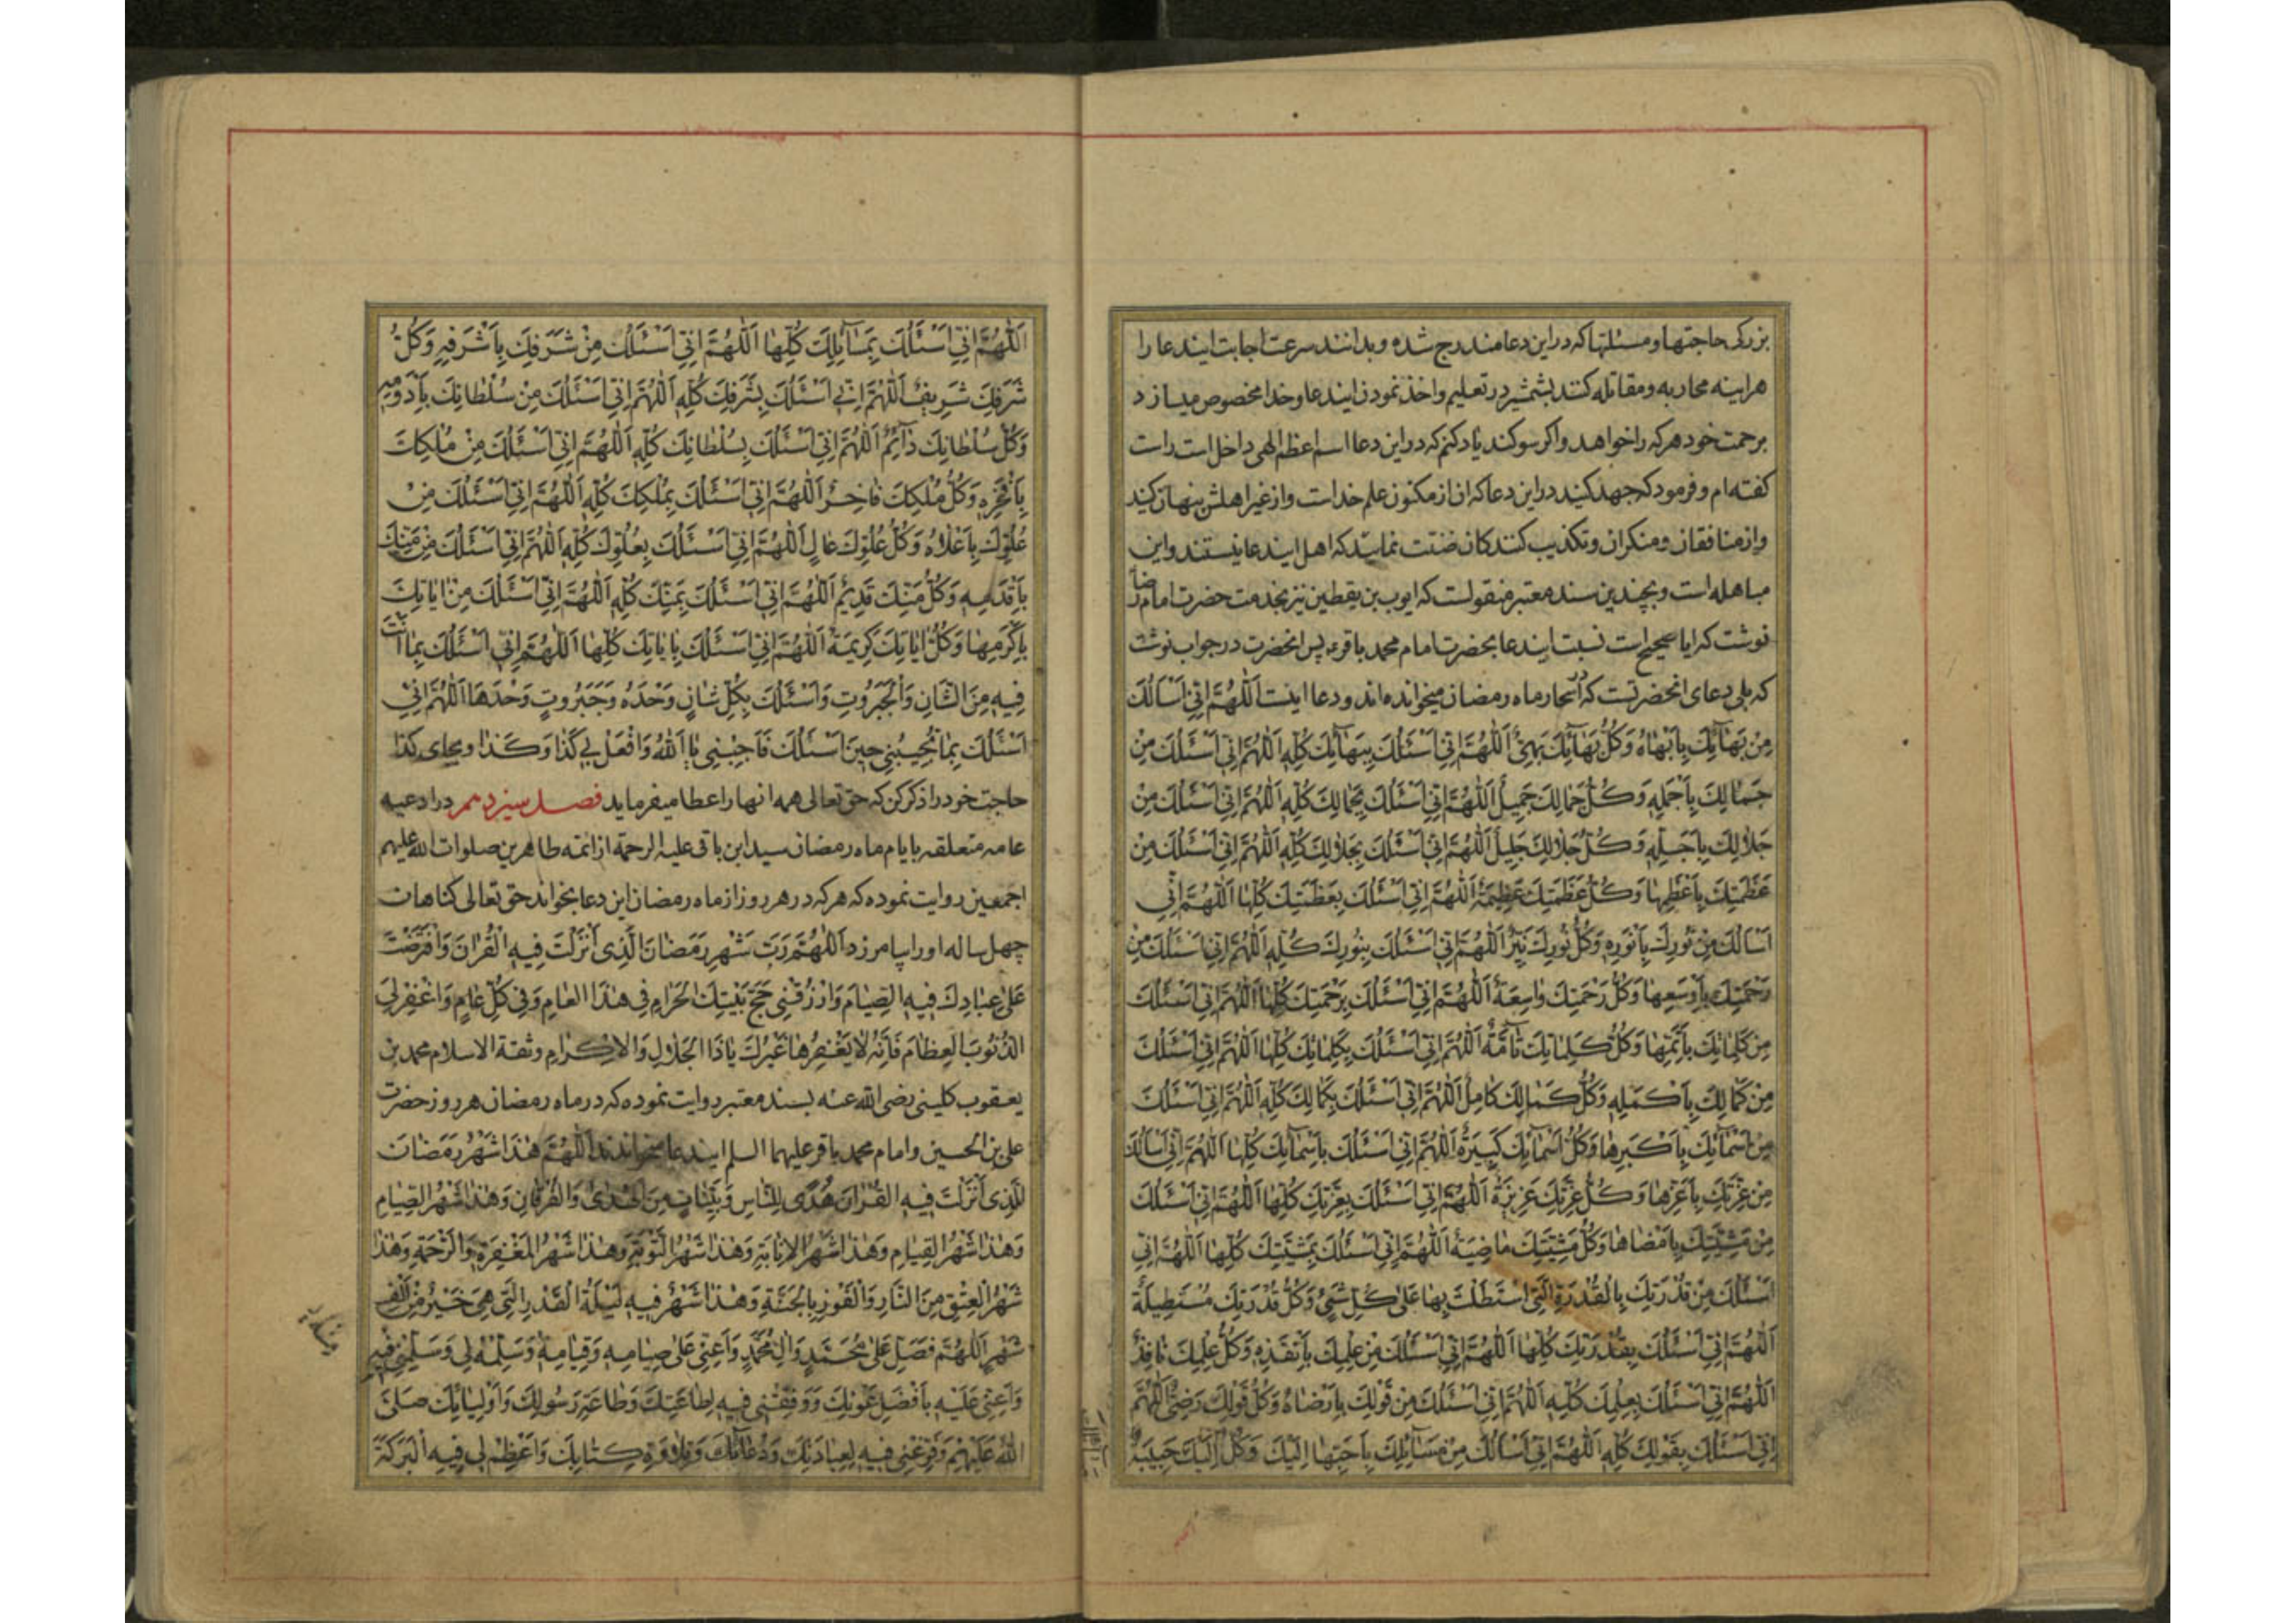 بزرکی حاجتها و مسئلتها که در این دعا مندرج شده و بدانند سرعت اجابت ایندعا را
هراینه محاربه و مقاتله کنند بشمشیر در تعلیم و اخذ نمودن ایندعا و خدا مخصوص میسازد
برحمت خود هر که را خواهد و اکر سوکند یاد کنم که در این دعا اسم اعظم الهی داخل است راست
کفته ام و فرمود که جهد کنید در این دعا که ان از مکنون علم خداست و از غیر اهلش پنهان کنید
و از منافقان و منکران و تکذیب کنندکان ضنت نمایید که اهل ایندعا نیستند و این
مباهله است و بچندین سند معتبر منقولست که ایوب بن یقطین نیز بخدمت حضرت امام رضا
نوشت که ایا صحیح است نسبت ایندعا بحضرت امام محمد باقر ع پس انحضرت در جواب نوشت
که بلی دعای انحضرتست که در اسحار ماه رمضان میخوانده اند و دعا اینست اَللّهُمَّ اِنّی اَسْاَلُكَ
مِنْ بَهآئِكَ بِاَبْهاهُ وَكُلُّ بَهآئِكَ بَهِیٌّ اَللّهُمَّ اِنّی اَسْئَلُكَ بِبَهآئِكَ كُلِّهِ اَللّهُمَّ اِنّی اَسْئَلُكَ مِنْ
جَمالِكَ بِاَجْمَلِهِ وَكُلُّ جَمالِكَ جَمیلٌ اَللّهُمَّ اِنّی اَسْئَلُكَ بِجَمالِكَ كُلِّهِ اَللّهُمَّ اِنّی اَسْئَلُكَ مِنْ
جَلالِكَ بِاَجَلِّهِ وَكُلُّ جَلالِكَ جَلیلٌ اَللّهُمَّ اِنّی اَسْئَلُكَ بِجَلالِكَ كُلِّهِ اَللّهُمَّ اِنّی اَسْئَلُكَ مِنْ
عَظَمَتِكَ بِاَعْظَمِها وَكُلُّ عَظَمَتِكَ عَظیمَةٌ اَللّهُمَّ اِنّی اَسْئَلُكَ بِعَظَمَتِكَ كُلِّها اَللّهُمَّ اِنّی
اَسْاَلُكَ مِنْ نُورِكَ بِاَنْوَرِهِ وَكُلُّ نُورِكَ نَیِّرٌ اَللّهُمَّ اِنّی اَسْئَلُكَ بِنُورِكَ كُلِّهِ اَللّهُمَّ اِنّی اَسْئَلُكَ مِنْ
رَحْمَتِكَ بِاَوْسَعِها وَكُلُّ رَحْمَتِكَ واسِعَةٌ اَللّهُمَّ اِنّی اَسْئَلُكَ بِرَحْمَتِكَ كُلِّها اَللّهُمَّ اِنّی اَسْئَلُكَ
مِنْ كَلِماتِكَ بِاَتَمِّها وَكُلُّ كَلِماتِكَ تآمَّةٌ اَللّهُمَّ اِنّی اَسْئَلُكَ بِكَلِماتِكَ كُلِّها اَللّهُمَّ اِنّی اَسْئَلُكَ
مِنْ كَمالِكَ بِاَكْمَلِهِ وَكُلُّ كَمالِكَ كامِلٌ اَللّهُمَّ اِنّی اَسْئَلُكَ بِكَمالِكَ كُلِّهِ اَللّهُمَّ اِنّی اَسْئَلُكَ
مِنْ اَسْمآئِكَ بِاَكْبَرِها وَكُلُّ اَسْمآئِكَ كَبیرَةٌ اَللّهُمَّ اِنّی اَسْئَلُكَ بِاَسْمآئِكَ كُلِّها اَللّهُمَّ اِنّی اَسْاَلُكَ
مِنْ عِزَّتِكَ بِاَعَزِّها وَكُلُّ عِزَّتِكَ عَزیزَةٌ اَللّهُمَّ اِنّی اَسْئَلُكَ بِعِزَّتِكَ كُلِّها اَللّهُمَّ اِنّی اَسْئَلُكَ
مِنْ مَشِیَّتِكَ بِاَمْضاها وَكُلُّ مَشِیَّتِكَ ماضِیَةٌ اَللّهُمَّ اِنّی اَسْئَلُكَ بِمَشِیَّتِكَ كُلِّها اَللّهُمَّ اِنّی
اَسْئَلُكَ مِنْ قُدْرَتِكَ بِالْقُدْرَةِ الَّتی اسْتَطَلْتَ بِها عَلی كُلِّ شَیْءٍ وَكُلُّ قُدْرَتِكَ مُسْتَطیلَةٌ
اَللّهُمَّ اِنّی اَسْئَلُكَ بِقُدْرَتِكَ كُلِّها اَللّهُمَّ اِنّی اَسْئَلُكَ مِنْ عِلْمِكَ بِاَنْفَذِهِ وَكُلُّ عِلْمِكَ نافِذٌ
اَللّهُمَّ اِنّی اَسْئَلُكَ بِعِلْمِكَ كُلِّهِ اَللّهُمَّ اِنّی اَسْئَلُكَ مِنْ قَوْلِكَ بِاَرْضاهُ وَكُلُّ قَوْلِكَ رَضِیٌّ اَللّهُمَّ
اِنّی اَسْئَلُكَ بِقَوْلِكَ كُلِّهِ اَللّهُمَّ اِنّی اَسْاَلُكَ مِنْ مَسآئِلِكَ بِاَحَبِّها اِلَیْكَ وَكُلٌّ اِلَیْكَ حَبیبَةٌ
اَللّهُمَّ اِنّی اَسْئَلُكَ بِمَسآئِلِكَ كُلِّها اَللّهُمَّ اِنّی اَسْئَلُكَ مِنْ شَرَفِكَ بِاَشْرَفِهِ وَكُلُّ
شَرَفِكَ شَریفٌ اَللّهُمَّ اِنّی اَسْئَلُكَ بِشَرَفِكَ كُلِّهِ اَللّهُمَّ اِنّی اَسْئَلُكَ مِنْ سُلْطانِكَ بِاَدْوَمِهِ
وَكُلُّ سُلْطانِكَ دآئِمٌ اَللّهُمَّ اِنّی اَسْئَلُكَ بِسُلْطانِكَ كُلِّهِ اَللّهُمَّ اِنّی اَسْئَلُكَ مِنْ مُلْكِكَ
بِاَفْخَرِهِ وَكُلُّ مُلْكِكَ فاخِرٌ اَللّهُمَّ اِنّی اَسْئَلُكَ بِمُلْكِكَ كُلِّهِ اَللّهُمَّ اِنّی اَسْئَلُكَ مِنْ
عُلُوِّكَ بِاَعْلاهُ وَكُلُّ عُلُوِّكَ عالٍ اَللّهُمَّ اِنّی اَسْئَلُكَ بِعُلُوِّكَ كُلِّهِ اَللّهُمَّ اِنّی اَسْئَلُكَ مِنْ مَنِّكَ
بِاَقْدَمِهِ وَكُلُّ مَنِّكَ قَدیمٌ اَللّهُمَّ اِنّی اَسْئَلُكَ بِمَنِّكَ كُلِّهِ اَللّهُمَّ اِنّی اَسْئَلُكَ مِنْ ایاتِكَ
بِاَكْرَمِها وَكُلُّ ایاتِكَ كَریمَةٌ اَللّهُمَّ اِنّی اَسْئَلُكَ بِایاتِكَ كُلِّها اَللّهُمَّ اِنّی اَسْئَلُكَ بِما اَنْتَ
فیهِ مِنَ الشَّانِ وَالْجَبَرُوتِ وَاَسْئَلُكَ بِكُلِّ شانٍ وَحْدَهُ وَجَبَرُوتٍ وَحْدَها اَللّهُمَّ اِنّی
اَسْئَلُكَ بِما تُجیبُنی حینَ اَسْئَلُكَ فَاَجِبْنی یا اَللّهُ وَافْعَلْ بی كَذا وَكَذا و بجای کذا
حاجت خود را ذکر کن که حق تعالی همه انها را عطا میفرماید فصل سیزدهم در ادعیه
عامه متعلقه بایام ماه رمضان سید ابن باقی علیه الرحمة از ائمه طاهرین صلوات الله علیهم
اجمعین روایت نموده که هر که در هر روز از ماه رمضان این دعا بخواند حق تعالی کناهان
چهل ساله او را بیامرزد اَللّهُمَّ رَبَّ شَهْرِ رَمَضانَ الَّذی اَنْزَلْتَ فیهِ الْقُرانَ وَافْتَرَضْتَ
عَلی عِبادِكَ فیهِ الصِّیامَ وَارْزُقْنی حَجَّ بَیْتِكَ الْحَرامِ فی هذَا الْعامِ وَفی كُلِّ عامٍ وَاغْفِرْ لِیَ
الذُّنُوبَ الْعِظامَ فَاِنَّهُ لا یَغْفِرُها غَیْرُكَ یا ذَا الْجَلالِ وَالْاِكْرامِ و ثقة الاسلام محمد بن
یعقوب کلینی رضی الله عنه بسند معتبر روایت نموده که در ماه رمضان هر روز حضرت
علی بن الحسین و امام محمد باقر علیهما السلم ایندعا میخواندند اَللّهُمَّ هذا شَهْرُ رَمَضانَ
الَّذی اَنْزَلْتَ فیهِ الْقُرانَ هُدًی لِلنّاسِ وَبَیِّناتٍ مِنَ الْهُدی وَالْفُرْقانِ وَهذا شَهْرُ الصِّیامِ
وَهذا شَهْرُ الْقِیامِ وَهذا شَهْرُ الْاِنابَةِ وَهذا شَهْرُ التَّوْبَةِ وَهذا شَهْرُ الْمَغْفِرَةِ وَالرَّحْمَةِ وَهذا
شَهْرُ الْعِتْقِ مِنَ النّارِ وَالْفَوْزِ بِالْجَنَّةِ وَهذا شَهْرٌ فیهِ لَیْلَةُ الْقَدْرِ الَّتی هِیَ خَیْرٌ مِنْ اَلْفِ
شَهْرٍ اَللّهُمَّ فَصَلِّ عَلی مُحَمَّدٍ وَالِ مُحَمَّدٍ وَاَعِنّی عَلی صِیامِهِ وَقِیامِهِ وَسَلِّمْهُ لی وَسَلِّمْنی فیهِ
وَاَعِنّی عَلَیْهِ بِاَفْضَلِ عَوْنِكَ وَوَفِّقْنی فیهِ لِطاعَتِكَ وَطاعَةِ رَسُولِكَ وَاَوْلِیائِكَ صَلَّی
اللّهُ عَلَیْهِمْ وَفَرِّغْنی فیهِ لِعِبادَتِكَ وَدُعآئِكَ وَتِلاوَةِ كِتابِكَ وَاَعْظِمْ لی فیهِ الْبَرَكَةَ